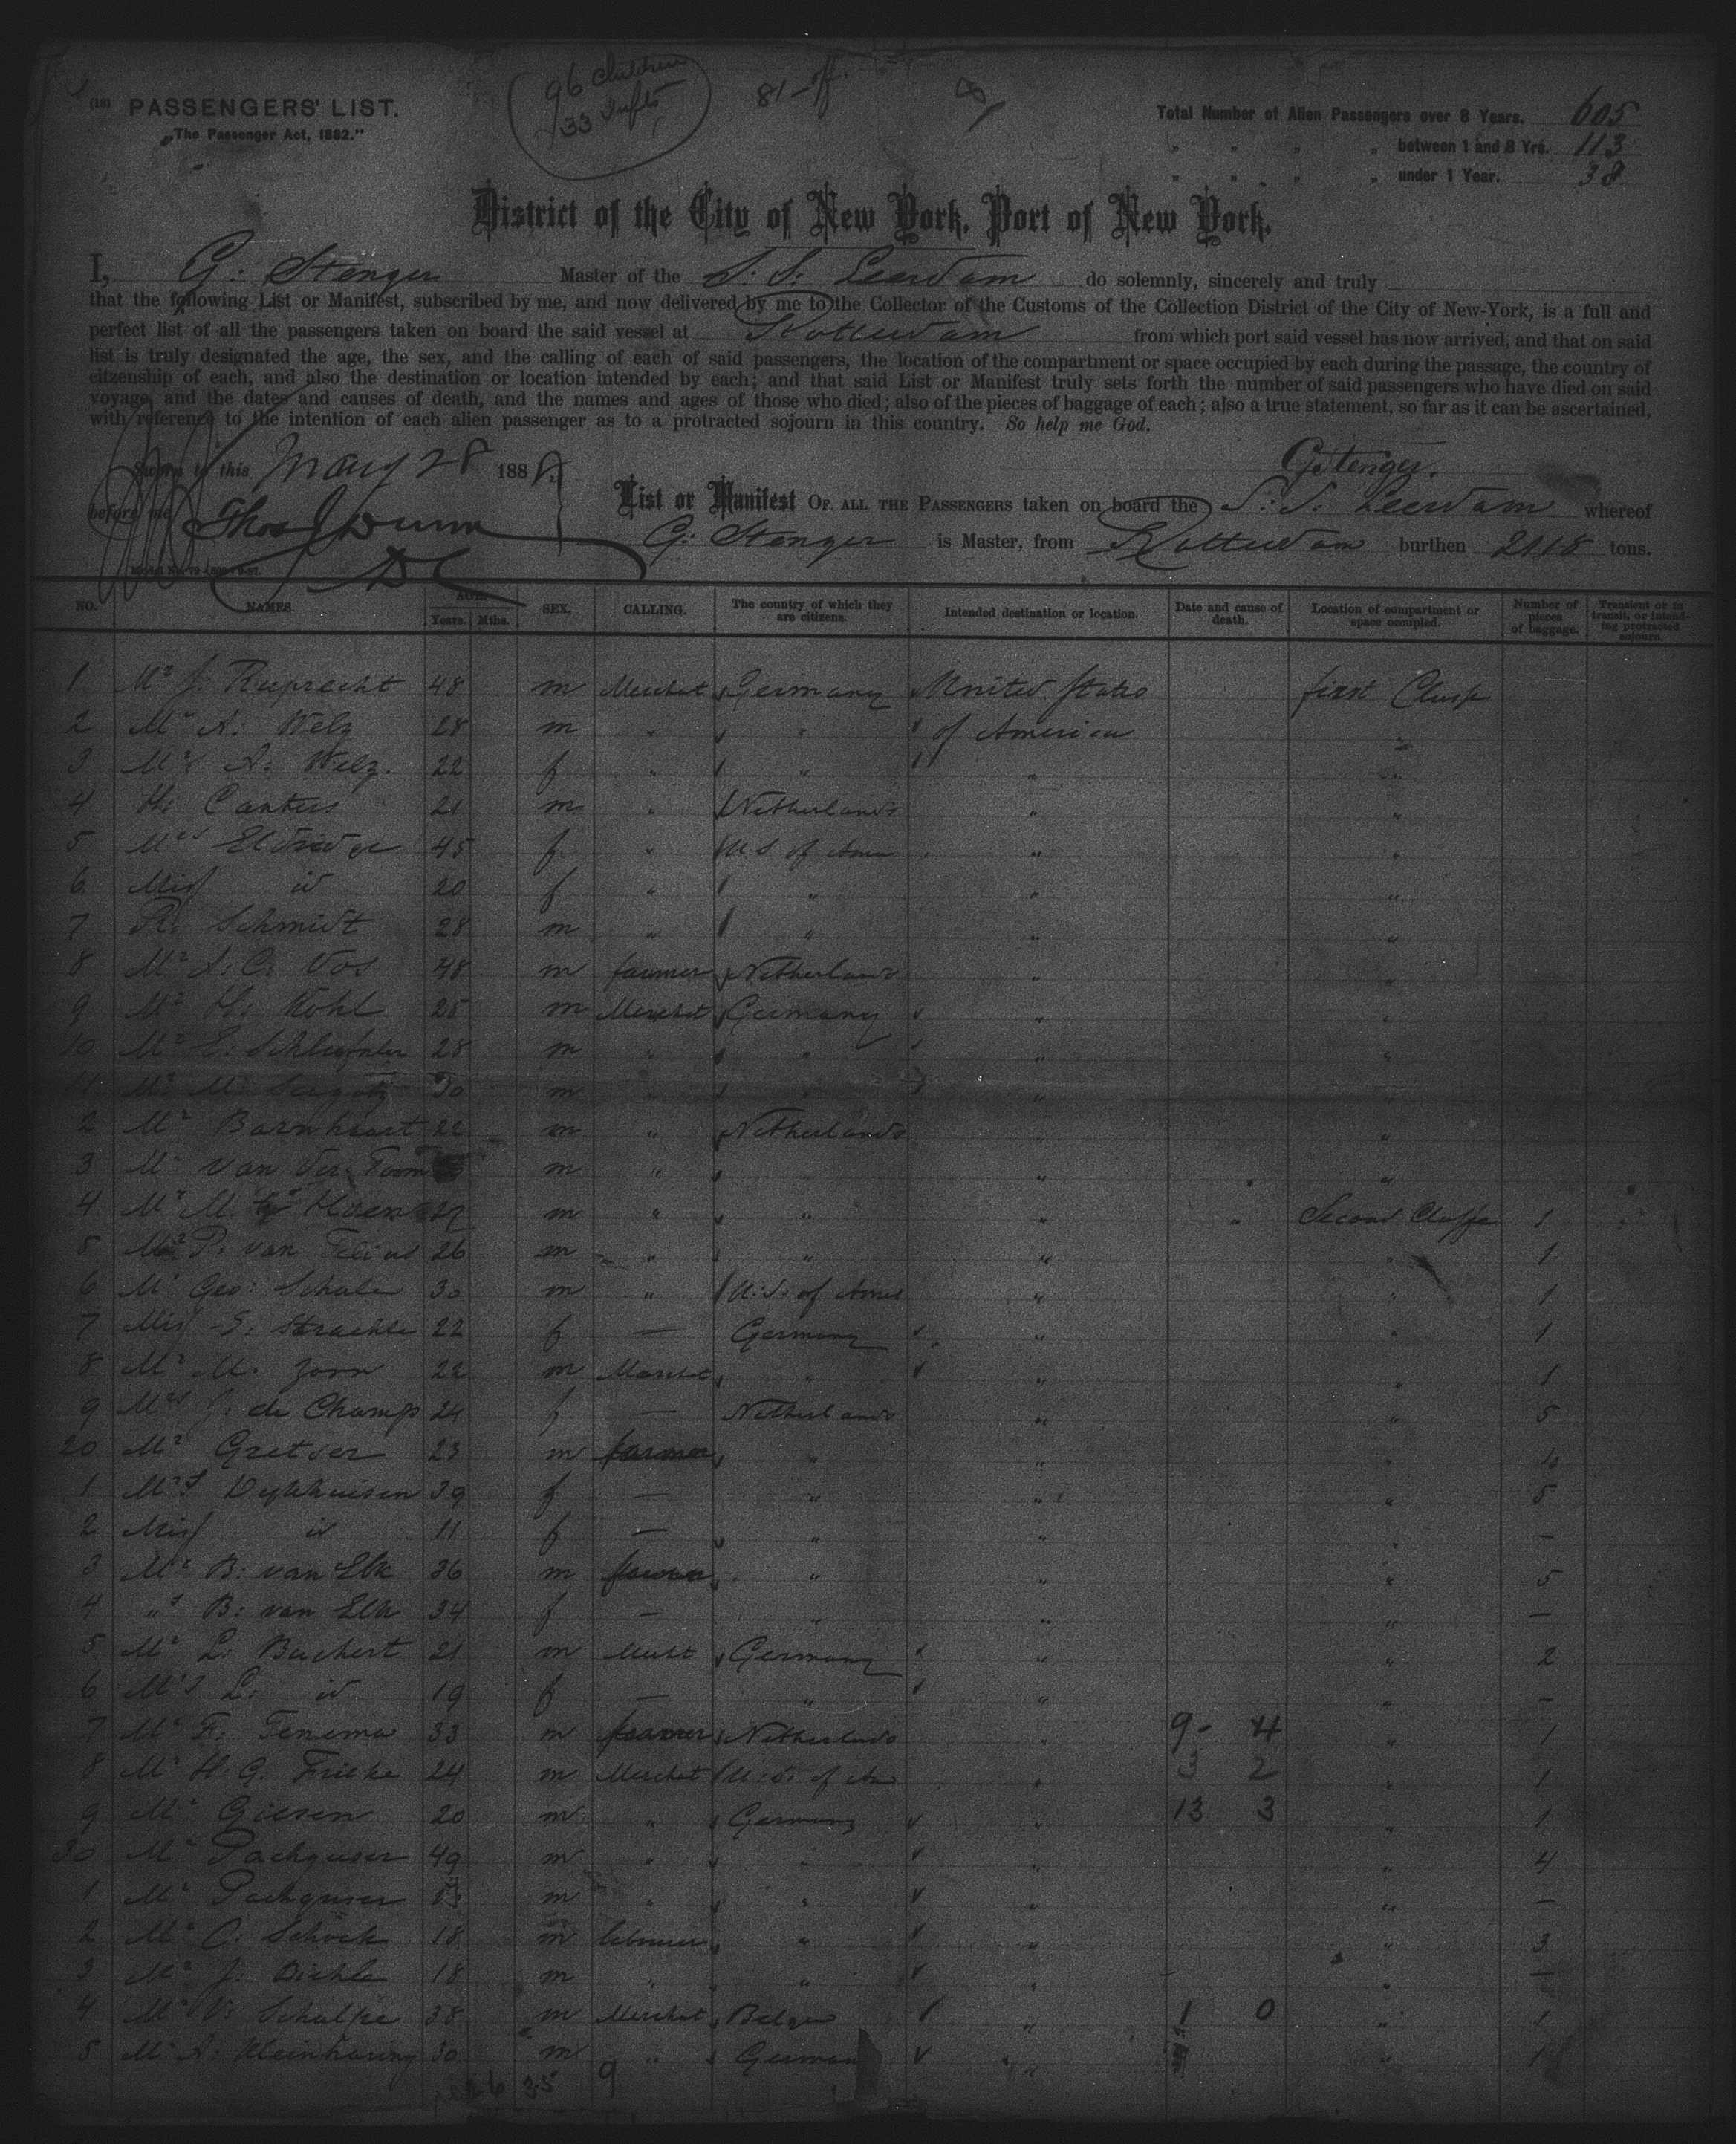 96 Children
33 Infts
81 - off
(18) PASSENGERS' LIST.
„The Passenger Act, 1882."
Total Number of Alien Passengers over 8 Years. 605
" " " „ between 1 and 8 Yrs. 113
" " " „ under 1 Year. 38
District of the City of New York, Port of New York.
I, G: Stenger Master of the S: S: Leerdam do solemnly, sincerely and truly
that the following List or Manifest, subscribed by me, and now delivered by me to the Collector of the Customs of the Collection District of the City of New-York, is a full and
perfect list of all the passengers taken on board the said vessel at Rotterdam from which port said vessel has now arrived, and that on said
list is truly designated the age, the sex, and the calling of each of said passengers, the location of the compartment or space occupied by each during the passage, the country of
citzenship of each, and also the destination or location intended by each; and that said List or Manifest truly sets forth the number of said passengers who have died on said
voyage, and the dates and causes of death, and the names and ages of those who died; also of the pieces of baggage of each; also a true statement, so far as it can be ascertained,
with reference to the intention of each alien passenger as to a protracted sojourn in this country. So help me God.
Sworn to this May 28 1888
G Stenger.
before me Thos J Dunn
DC
List or Manifest OF ALL THE PASSENGERS taken on board the S: S. Leerdam whereof
G: Stenger is Master, from Rotterdam burthen 2118 tons.
NO. NAMES AGE. Years. Mths. SEX. CALLING. The country of which they are citizens. Intended destination or location. Date and cause of death. Location of compartment or space occupied. Number of pieces of baggage. Transient or in transit, or intending protracted sojourn.
1 Mr J: Ruprecht 48 m Merchat Germany United States first Class
2 Mr A: Welz 28 m " " of America "
3 Mrs A: Welz. 22 f " " " "
4 H: Cankers 21 m " Netherlands " "
5 Mrs Eldridge 45 f " U S of Ame " "
6 Miss id 20 f " " " "
7 R: Schmidt 28 m " " " "
8 Mr A: C: Vos 48 m farmer Netherlands " "
9 Mr H: Kohl 25 m Merchat Germany " "
10 Mr E: 28 m " " " "
11 Mr M: 30 m " " " "
2 Mr Barnheart 22 m " Netherlands " "
3 Mr van der Toom m " " " "
4 Mr M 27 m " " " Second Classe 1
5 Mr P: van 26 m " " " " 1
6 Mr Geo: Schule 30 m " U: S. of Ame " " 1
7 Miss S: Straehle 22 f — Germany " " 1
8 Mr M. Zorn 22 m Merchat " " " 1
9 Mrs J: de Champs 24 f — Netherlands " " 5
20 Mr Gretser 23 m farmer " " "
1 Mrs Dykhuisen 39 f — " " " 5
2 Miss id 11 f — " " " —
3 Mr B: van Elk 36 m farmer " " " 5
4 "s B: van Elk 34 f — " " " —
5 Mr L: Bachert 21 m Mercht Germany " " 2
6 Mrs L: id 19 f — " " " —
7 Mr F: Fenema 33 m farmer Netherlands " 9 - 4 " 1
8 Mr H. G. Fricke 24 m Merchat U: S: of Am " 3 2 " 1
9 Mr Giesen 20 m " Germany " 13 3 " 1
30 Mr 49 m " " " " 4
1 Mr m " " " " —
2 Mr C: Schock 18 m labourer " " " 3
3 Mr J: Biehle 18 m " " " " —
4 Mr V: 38 m Merchat Belge " 1 0 " 1
5 Mr A: Kleinharing 30 m " German " " 1
26 35 9